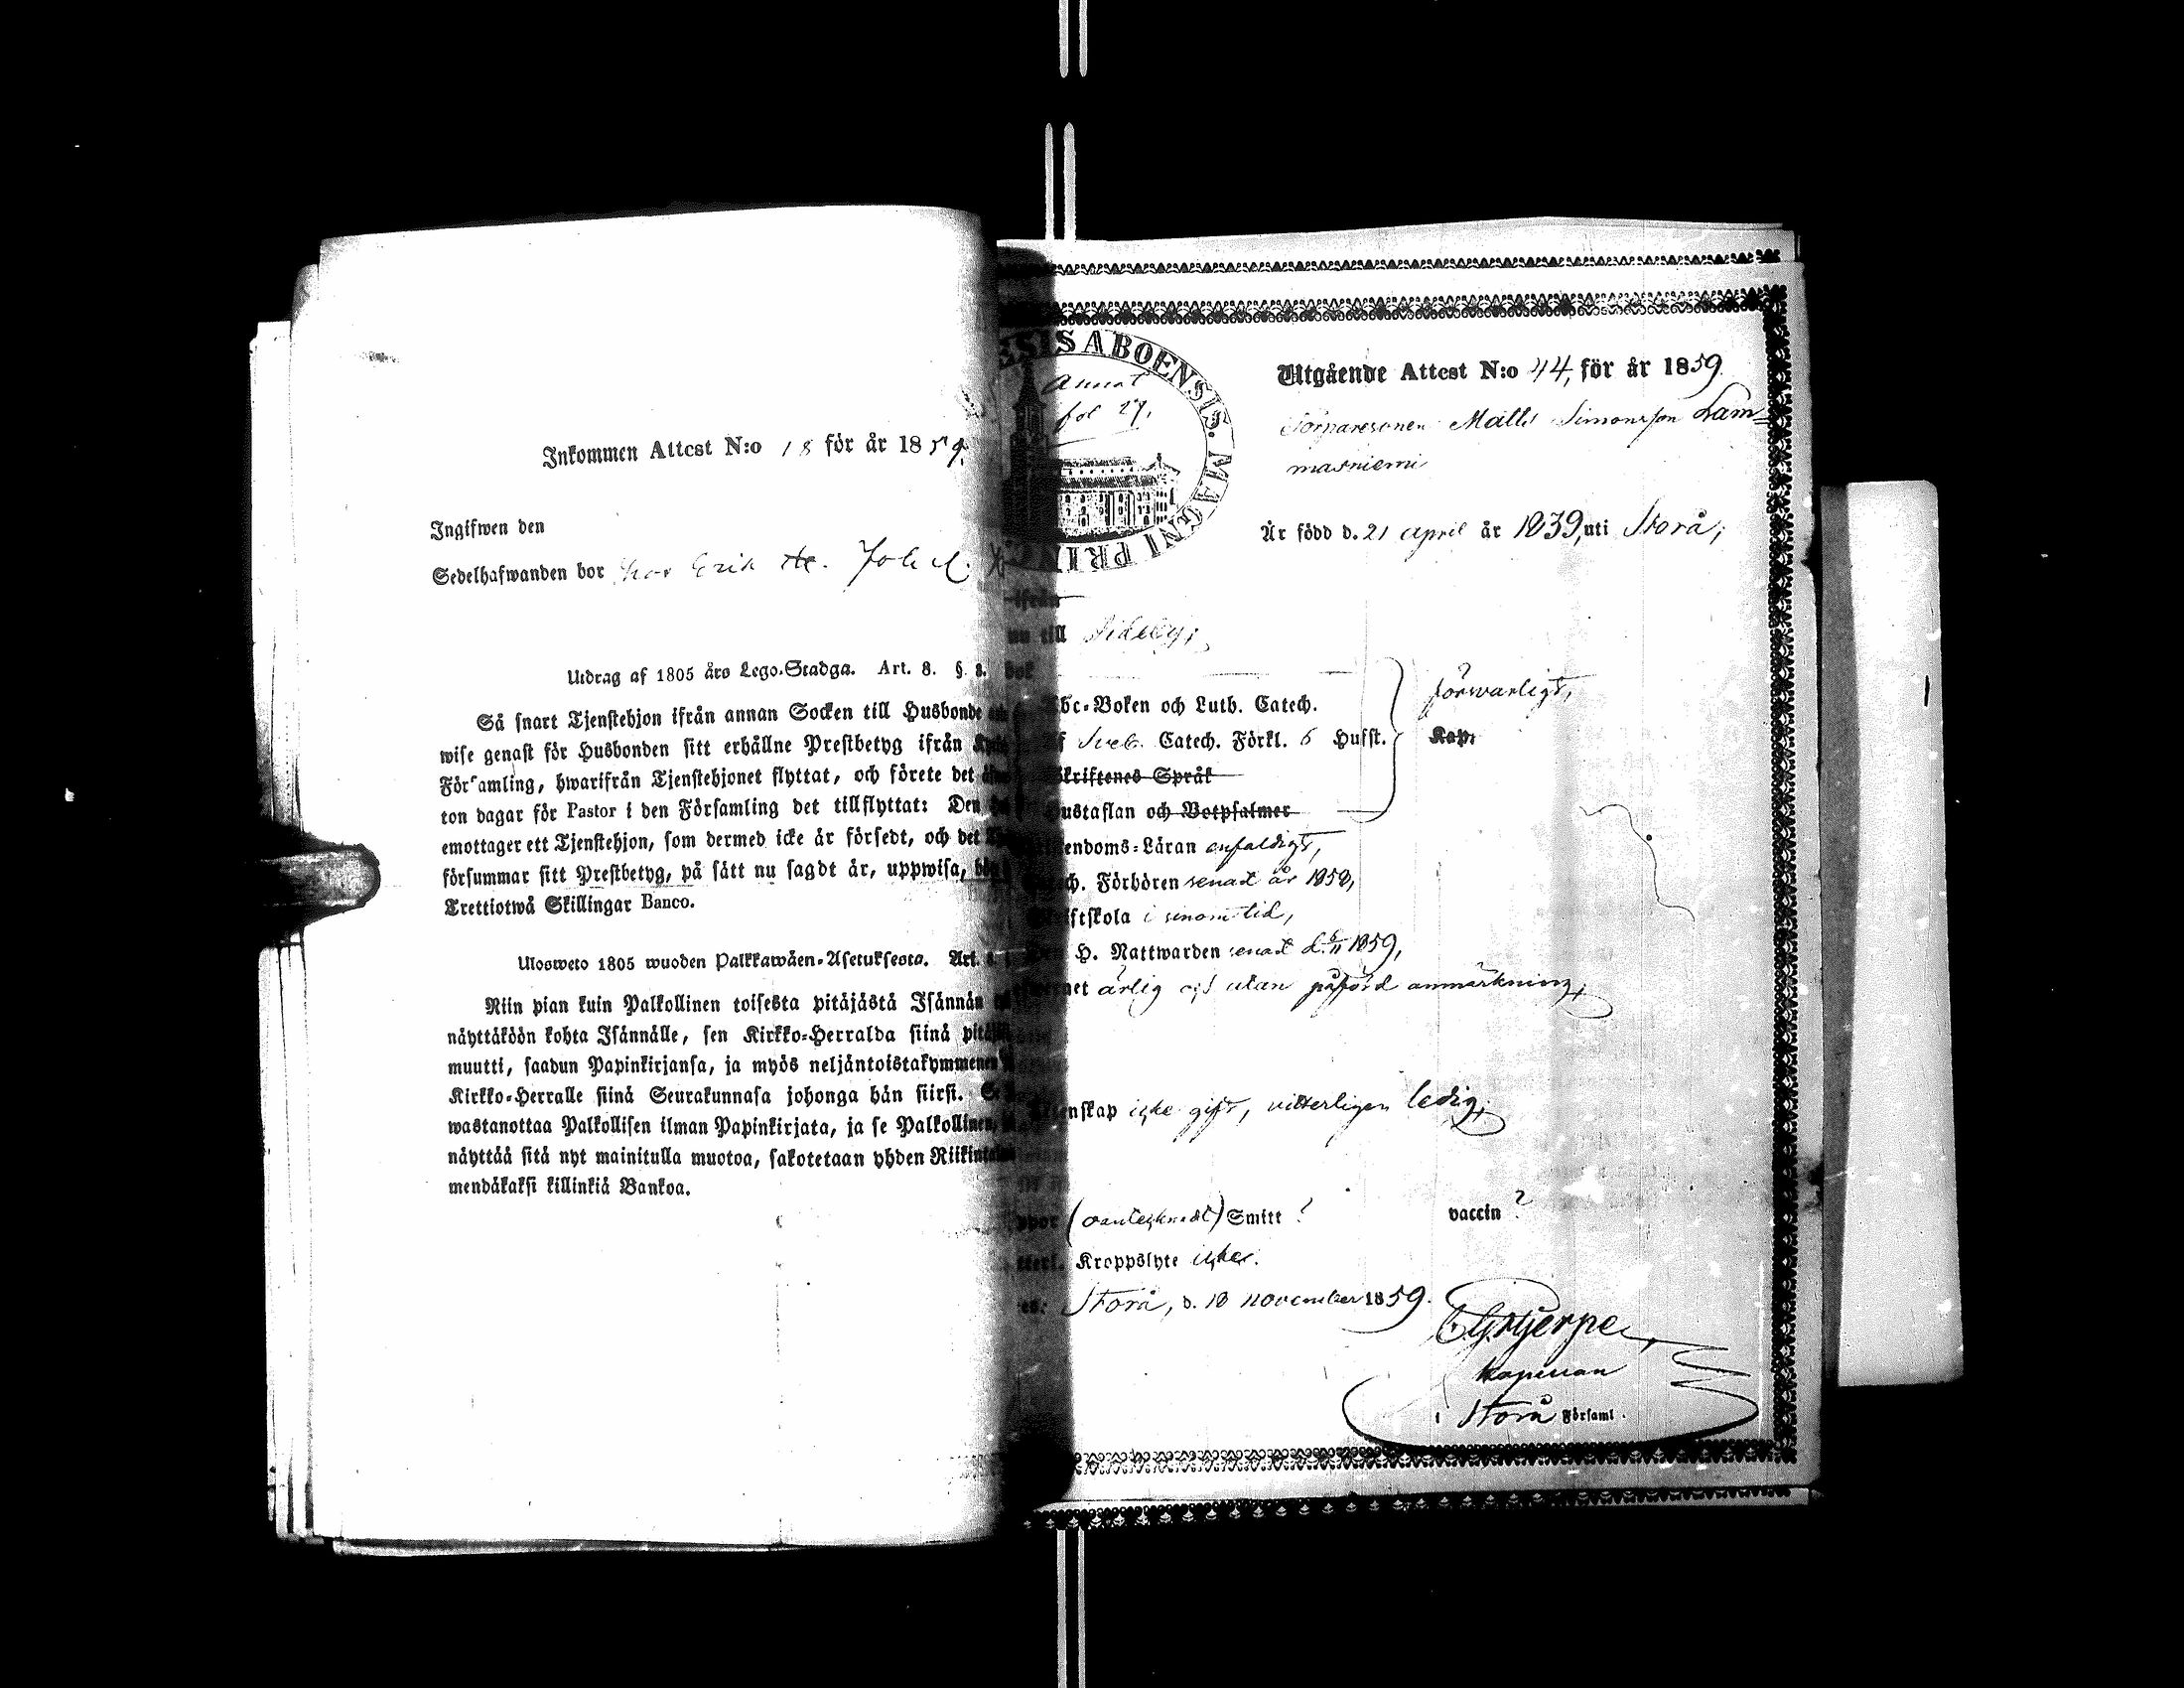 Inkommen Attest N:o 18 för år 1859.
Ingifwen den
Sedelhafwanden bor hos Erik
Utdrag af 1805 års Lego-Stadga. Art. 8. §. 8.
Så snart Tjenstehjon ifrån annan Socken till Husbonde
wise genast för Husbonden sitt erhållne Prestbetyg ifrån
Församling, hwarifrån Tjenstehjonet flyttat, och förete det
ton dagar för Pastor i den Församling det tillflyttat: Den
emottager ett Tjenstehjon, som dermed icke är försedt, och det
försummar sitt Prestbetyg, på sätt nu sagdt är, uppwisa,
Trettiotwå Skillingar Banco.
Ulosweto 1805 wuoden Palkkawäen-Asetuksesta. Art.
Niin pian kuin Palkollinen toisesta pitäjästä Isännän
näyttäköön kohta Isännälle, sen Kirkko-Herralda siinä
muutti, saadun Papinkirjansa, ja myös neljäntoistakymmenen
Kirkko-Herralle siinä Seurakunnasa johonga hän siirsi.
wastanottaa Palkollisen ilman Papinkirjata, ja se Palkollinen,
näyttää sitä nyt mainitulla muotoa, sakotetaan yhden
mendäkaksi killinkiä Bankoa.
ESIS ABOENSIS. MAGNI PRIN
Annot
fol 27.
Utgående Attest N:o 44, för år 1859.
Torparesonen Matts Simonsson Lam=
masniemi
Är född d. 21 April år 1839, uti Storå;
ifrån
nu till Sideby;
bok
Abc-Boken och Luth. Catech. förswarligt,
af Sveb. Catech. Förkl. 6 Husst. Kap.
Skriftenes Språk
Hustaflan och Botpsalmer
endoms-Läran enfaldigt,
ch. Förhören senast år 1858,
riftskola i sinom tid,
H. Nattwarden senast d. 6/11 1859,
ernet ärlig och utan påförd anmärkning,
enskap icke gift, vitterligen ledig,
ppor (oantecknadt) Smitt ? vaccin ?
tterl. Kroppslyte icke.
Storå, d. 18 November 1859.
Kapellan
i Storå Församl.